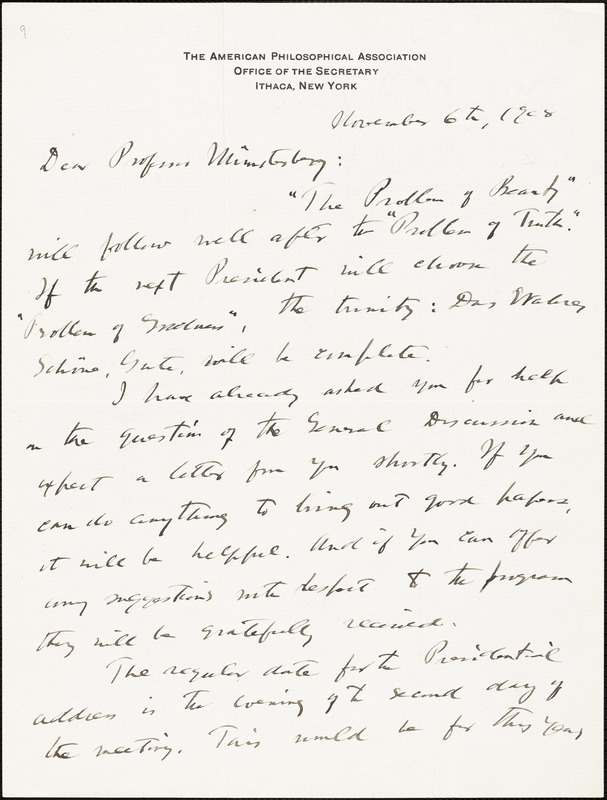 9
The American Philosophical Association
Office of the Secretary
Ithaca, New York
November 6th, 1908
Dear Professor Münsterberg:
"The Problem of Beauty"
will follow well after the "Problem of Truth".
If the next President will choose the
"Problem of Goodness", the trinity: Das Wahre,
Schöne, Gute, will be complete.
I have already asked you for help
on the question of the General Discussion and
expect a letter from you shortly. If you
can do anything to bring out good papers,
it will be helpful. And if you can offer
any suggestions with respect to the program
they will be gratefully received.
The regular date for the Presidential
address is the evening of the second day of
the meeting. This would be for this year